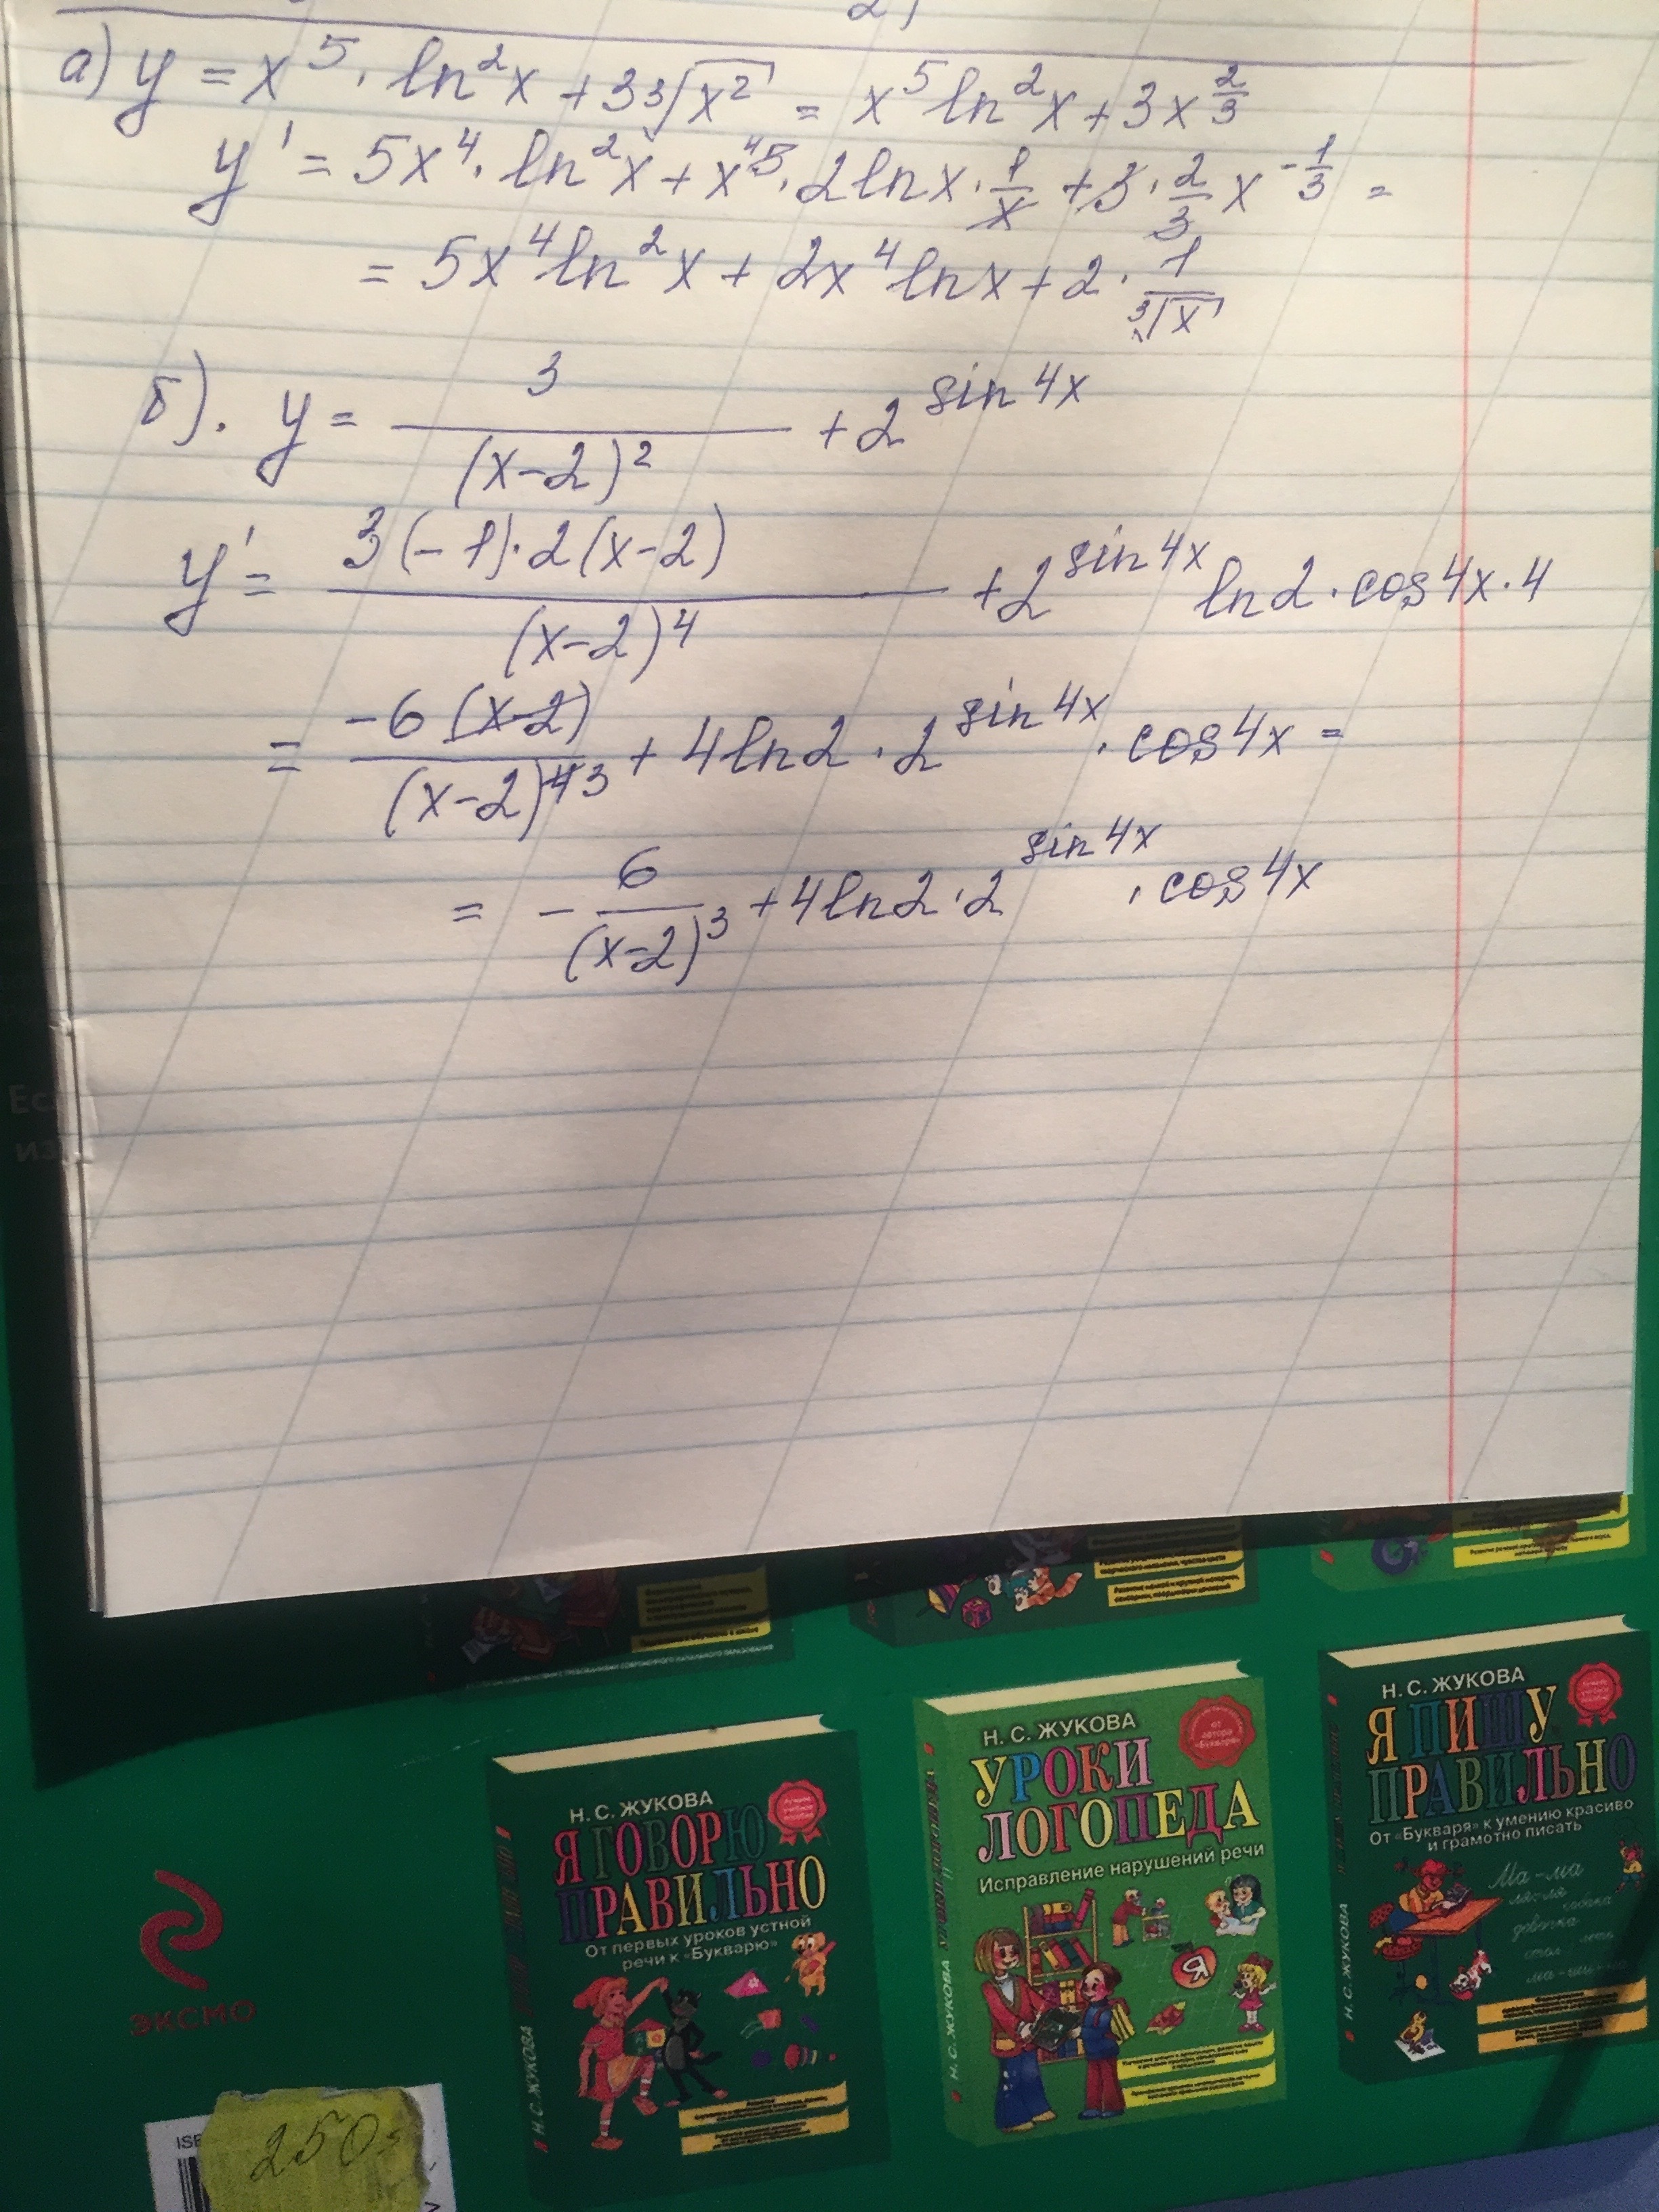 2)
а) y = x⁵ · ln²x + 3∛x² = x⁵ ln²x + 3x^(2/3)
y' = 5x⁴ · ln²x + x⁴⁵ · 2lnx · 1/x + 3 · 2/3 x^(-1/3) =
= 5x⁴ ln²x + 2x⁴ lnx + 2 · 1/∛x
б). y = 3/(x-2)² + 2^(sin4x)
y' = 3(-1)·2(x-2)/(x-2)⁴ + 2^(sin4x) ln2 · cos4x · 4
= -6(x-2)/(x-2)⁴³ + 4ln2 · 2^(sin4x) · cos4x =
= -6/(x-2)³ + 4ln2 · 2^(sin4x) · cos4x
Н. С. ЖУКОВА
Я ГОВОРЮ
ПРАВИЛЬНО
От первых уроков устной
речи к «Букварю»
Н. С. ЖУКОВА
Н. С. ЖУКОВА
УРОКИ
ЛОГОПЕДА
Исправление нарушений речи
от
автора
«Букваря»
Я
Н. С. ЖУКОВА
Н. С. ЖУКОВА
Я ПИШУ
ПРАВИЛЬНО
От «Букваря» к умению красиво
и грамотно писать
Ма-ма
Н. С. ЖУКОВА
ЭКСМО
ISB
250